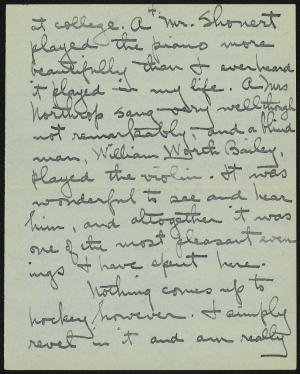 at college. A Mr. Shonert
played the piano more
beautifully than I ever heard
it played in my life. A Mrs
Northrop sang very well though
not remarkably, and a blind
man, William Worth Bailey,
played the violin. It was
wonderful to see and hear
him, and altogether it was
one of the most pleasant even
ings I have spent here.
Nothing comes up to
hockey, however. I simply
revel in it and am really